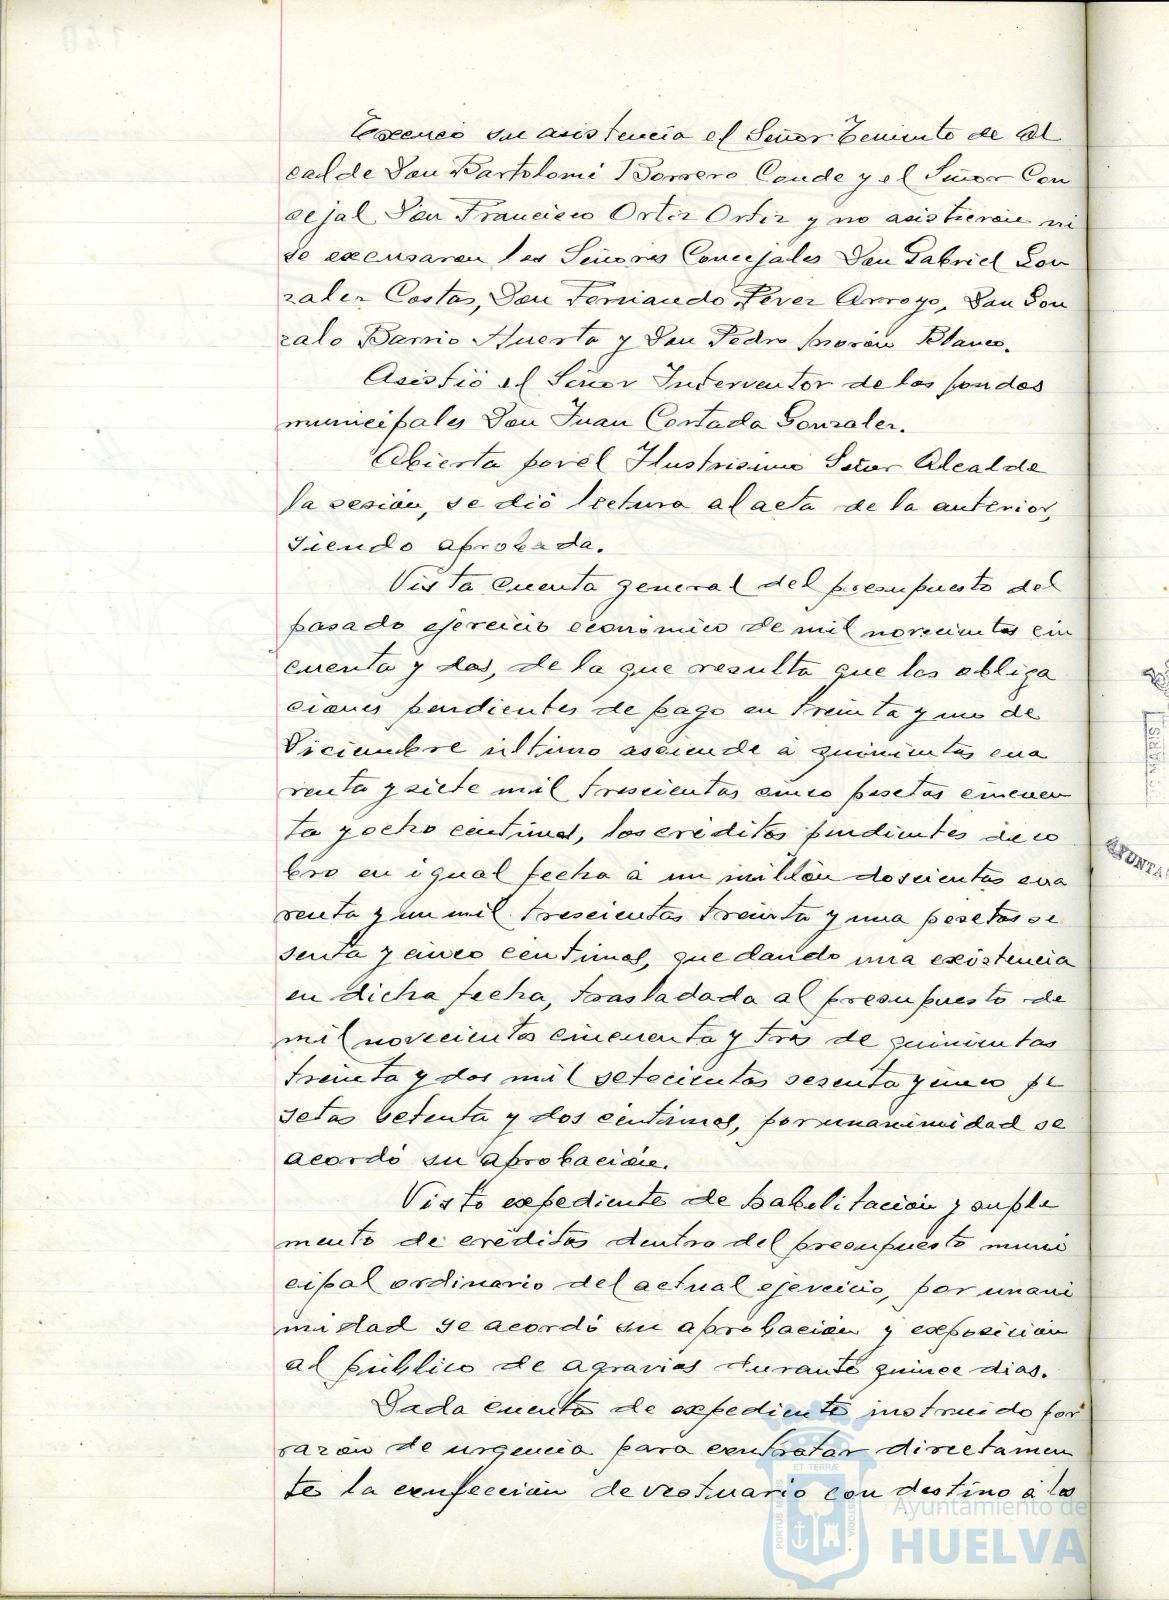 Excusó su asistencia el Señor Teniente de Al
calde Don Bartolomé Borrero Conde y el Señor Con
cejal Don Francisco Ortiz Ortiz y no asistieron ni
se excusaron los Señores Concejales Don Gabriel Gon
zalez Costas, Don Fernando Pérez Arroyo, Don Gon
zalo Barrio Huerta y Don Pedro Morón Blanco.
Asistió el Señor Interventor de los fondos
municipales Don Juan Cortada Gonzalez.
Abierta por el Ilustrisimo Señor Alcalde
la sesión, se dió lectura al acta de la anterior,
siendo aprobada.
Vista cuenta general del presupuesto del
pasado ejercicio económico de mil novecientos cin
cuenta y dos, de la que resulta que las obliga
ciones pendientes de pago en treinta y uno de
Diciembre último asciende á quinientas cua
renta y siete mil trescientas cinco pesetas cincuen
ta y ocho céntimos, los créditos pendientes de co
bro en igual fecha á un millón doscientas cua
renta y un mil trescientas treinta y una pesetas se
senta y cinco centimos, quedando una existencia
en dicha fecha, trasladada al presupuesto de
mil novecientos cincuenta y tres de quinientas
treinta y dos mil setecientas sesenta y cinco pe
setas setenta y dos céntimos, por unanimidad se
acordó su aprobación.
Visto expediente de habilitación y suple
mento de créditos dentro del presupuesto muni
cipal ordinario del actual ejercicio, por unani
midad se acordó su aprobación y exposición
al público de agravios durante quince dias.
Dada cuenta de expediente instruido por
razón de urgencia para contratar directamen
te la confección de vestuario con destino á los
ET TERRÆ
PORTUS MARIS
CUSTODIA
Ayuntamiento de
HUELVA
MARIS
AYUNTA
140